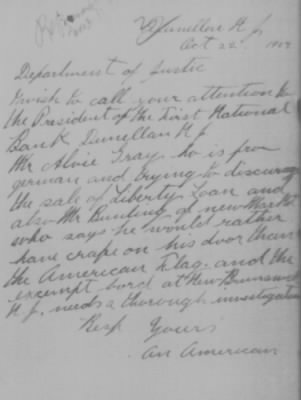 Dunellen N J.
Oct 22 1917
Department of Justic
I wish to call your attention to
the President of the First National
Bank Dunellen N J
Mr Alvie Gray ho is pro
german and trying to discurage
the sale of Liberty Loan and
also Mr Bunting of new Market
who says he would rather
have crape on his door than
the American Flag. and the
exempt bord at New Brunswick
N J. needs a thorough investigation
Resp Yours
an American